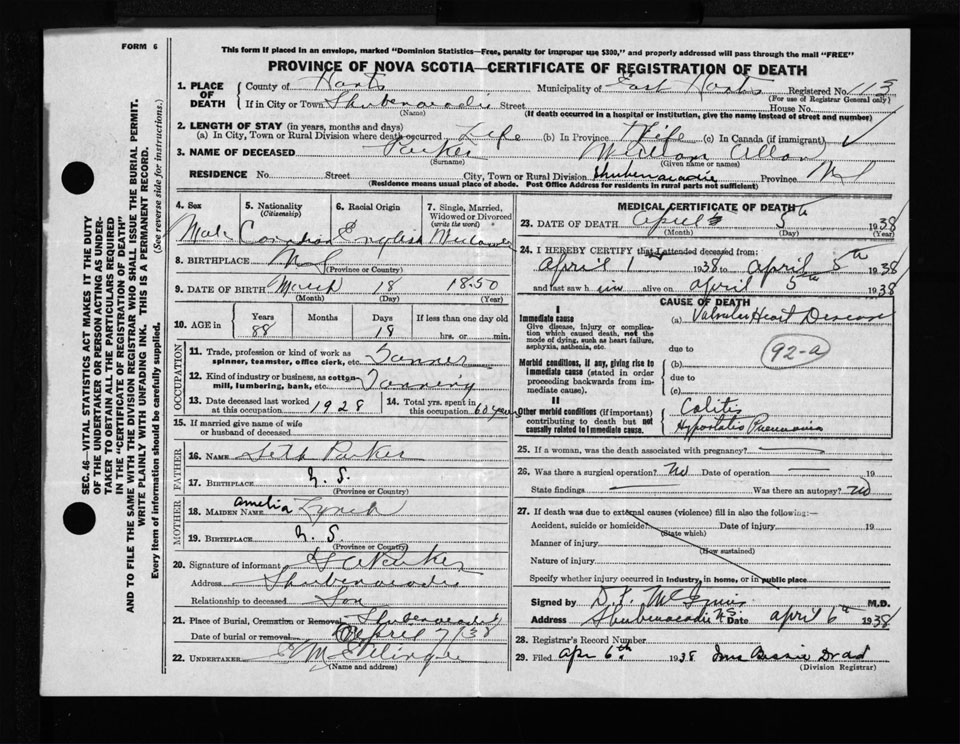 FORM 6
This form if placed in an envelope, marked "Dominion Statistics—Free, penalty for improper use $300," and properly addressed will pass through the mail "FREE"
PROVINCE OF NOVA SCOTIA—CERTIFICATE OF REGISTRATION OF DEATH
SEC. 46—VITAL STATISTICS ACT MAKES IT THE DUTY
OF THE UNDERTAKER OR PERSON ACTING AS UNDER-
TAKER TO OBTAIN ALL THE PARTICULARS REQUIRED
IN THE "CERTIFICATE OF REGISTRATION OF DEATH"
AND TO FILE THE SAME WITH THE DIVISION REGISTRAR WHO SHALL ISSUE THE BURIAL PERMIT.
WRITE PLAINLY WITH UNFADING INK. THIS IS A PERMANENT RECORD.
Every item of information should be carefully supplied. (See reverse side for instructions.)
1. PLACE OF DEATH County of Hants Municipality of East Hants Registered No. 113
(For use of Registrar General only)
If in City or Town Shubenacadie Street House No.
(Name) (If death occurred in a hospital or institution, give the name instead of street and number)
2. LENGTH OF STAY (in years, months and days)
(a) In City, Town or Rural Division where death occurred Life (b) In Province Life (c) In Canada (if immigrant)
3. NAME OF DECEASED Parker William
(Surname) (Given name or names)
RESIDENCE No. Street City, Town or Rural Division Shubenacadie Province NS
(Residence means usual place of abode. Post Office Address for residents in rural parts not sufficient)
4. Sex 5. Nationality (Citizenship) 6. Racial Origin 7. Single, Married, Widowed or Divorced (write the word)
Male Canadian English Widower
8. BIRTHPLACE NS
(Province or Country)
9. DATE OF BIRTH March 18 1850
(Month) (Day) (Year)
10. AGE in Years Months Days If less than one day
88 18 hrs. or min.
OCCUPATION
11. Trade, profession or kind of work as spinner, teamster, office clerk, etc. Tanner
12. Kind of industry or business, as cotton mill, lumbering, bank, etc. Tanning
13. Date deceased last worked at this occupation 1928 14. Total yrs. spent in this occupation 60 years
15. If married give name of wife or husband of deceased
FATHER
16. NAME Seth Parker
17. BIRTHPLACE N. S.
(Province or Country)
MOTHER
18. MAIDEN NAME Amelia Lynch
19. BIRTHPLACE N. S.
(Province or Country)
20. Signature of informant Parker
Address Shubenacadie
Relationship to deceased Son
21. Place of Burial, Cremation or Removal Shubenacadie
Date of burial or removal April 7/38
22. UNDERTAKER
MEDICAL CERTIFICATE OF DEATH
23. DATE OF DEATH April 5th 1938
(Month) (Day) (Year)
24. I HEREBY CERTIFY that I attended deceased from:
April 1 1938 to April 5th 1938
and last saw him alive on April 5th 1938
CAUSE OF DEATH
I
Immediate cause (a) Valvular Heart Disease
Give disease, injury or complication which caused death, not the mode of dying, such as heart failure, asphyxia, asthenia, etc.
due to
92-a
Morbid conditions, if any, giving rise to immediate cause (stated in order proceeding backwards from immediate cause).
(b)
due to
(c)
II
Other morbid conditions (if important) contributing to death but not causally related to immediate cause.
Colitis
Hypostatic Pneumonia
25. If a woman, was the death associated with pregnancy?
26. Was there a surgical operation? No Date of operation 19
State findings Was there an autopsy? No
27. If death was due to external causes (violence) fill in also the following:—
Accident, suicide or homicide? Date of injury 19
(State which)
Manner of injury
(How sustained)
Nature of injury
Specify whether injury occurred in industry, in home, or in public place
Signed by M.D.
Address Shubenacadie N.S. Date April 6th 1938
28. Registrar's Record Number
29. Filed Apr 6th 1938 Mrs Bessie
(Division Registrar)